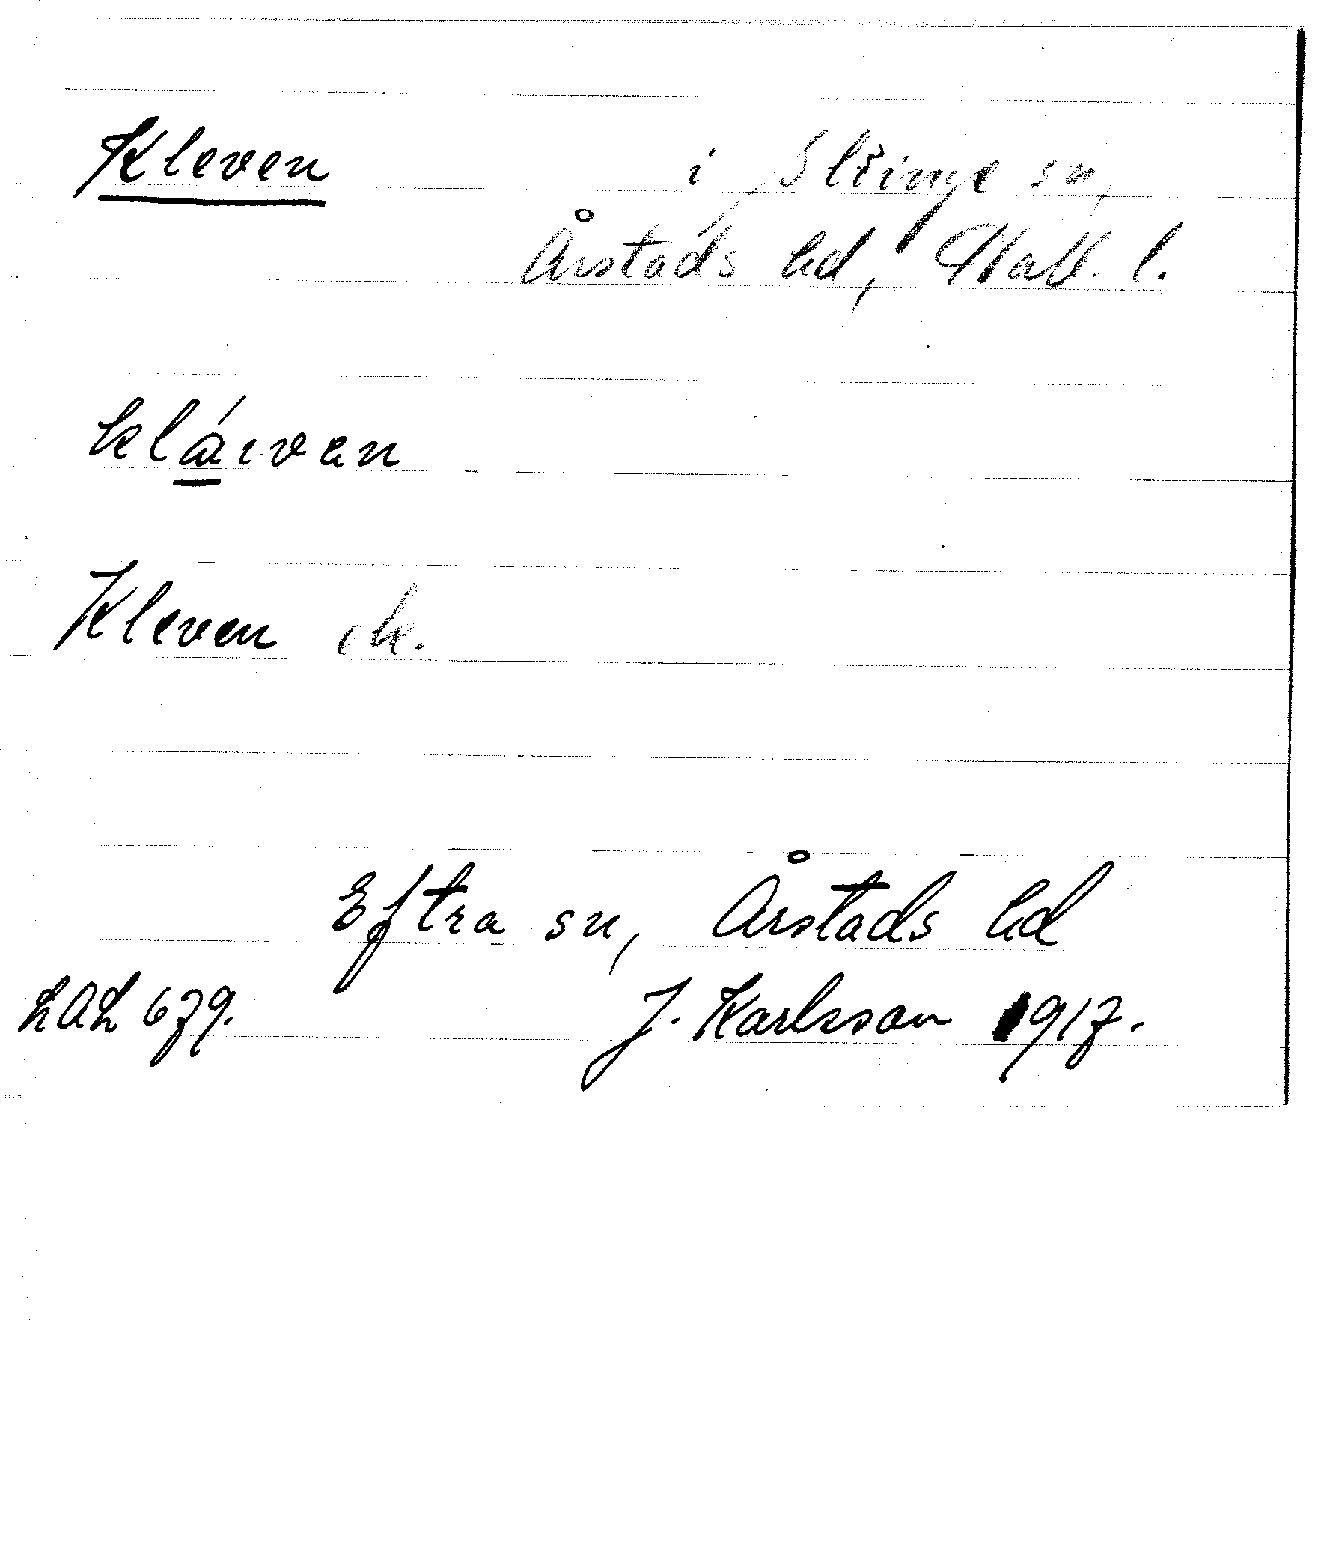 Kleven i Slöinge sn,
Årstads hd, Hall. l.
kláıvan
Kleven ek.
Eftra sn, Årstads hd
LAL 679. J. Karlsson 1917.